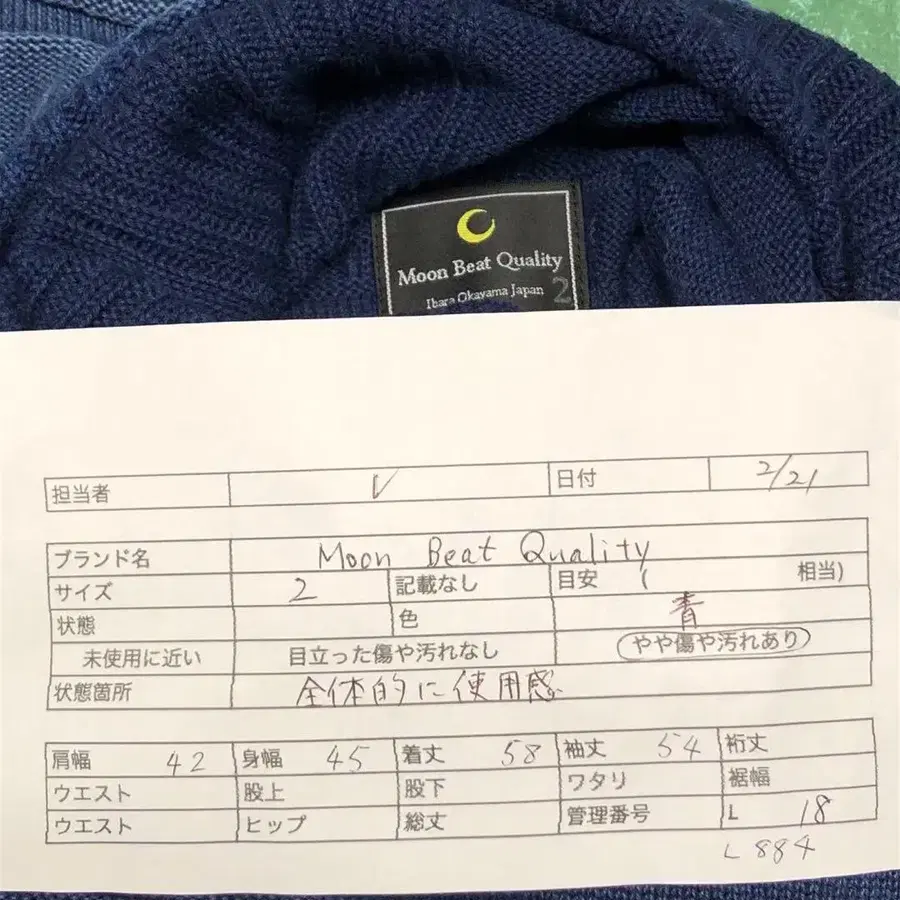 Moon Beat Quality
Ibara Okayama Japan 2
担当者 V 日付 2/21
ブランド名 Moon Beat Quality
サイズ 2 記載なし 目安 ( 相当)
状態 色 青
未使用に近い 目立った傷や汚れなし やや傷や汚れあり
状態箇所 全体的に使用感
肩幅 42 身幅 45 着丈 58 袖丈 54 裄丈
ウエスト 股上 股下 ワタリ 裾幅
ウエスト ヒップ 総丈 管理番号 L 18
L884